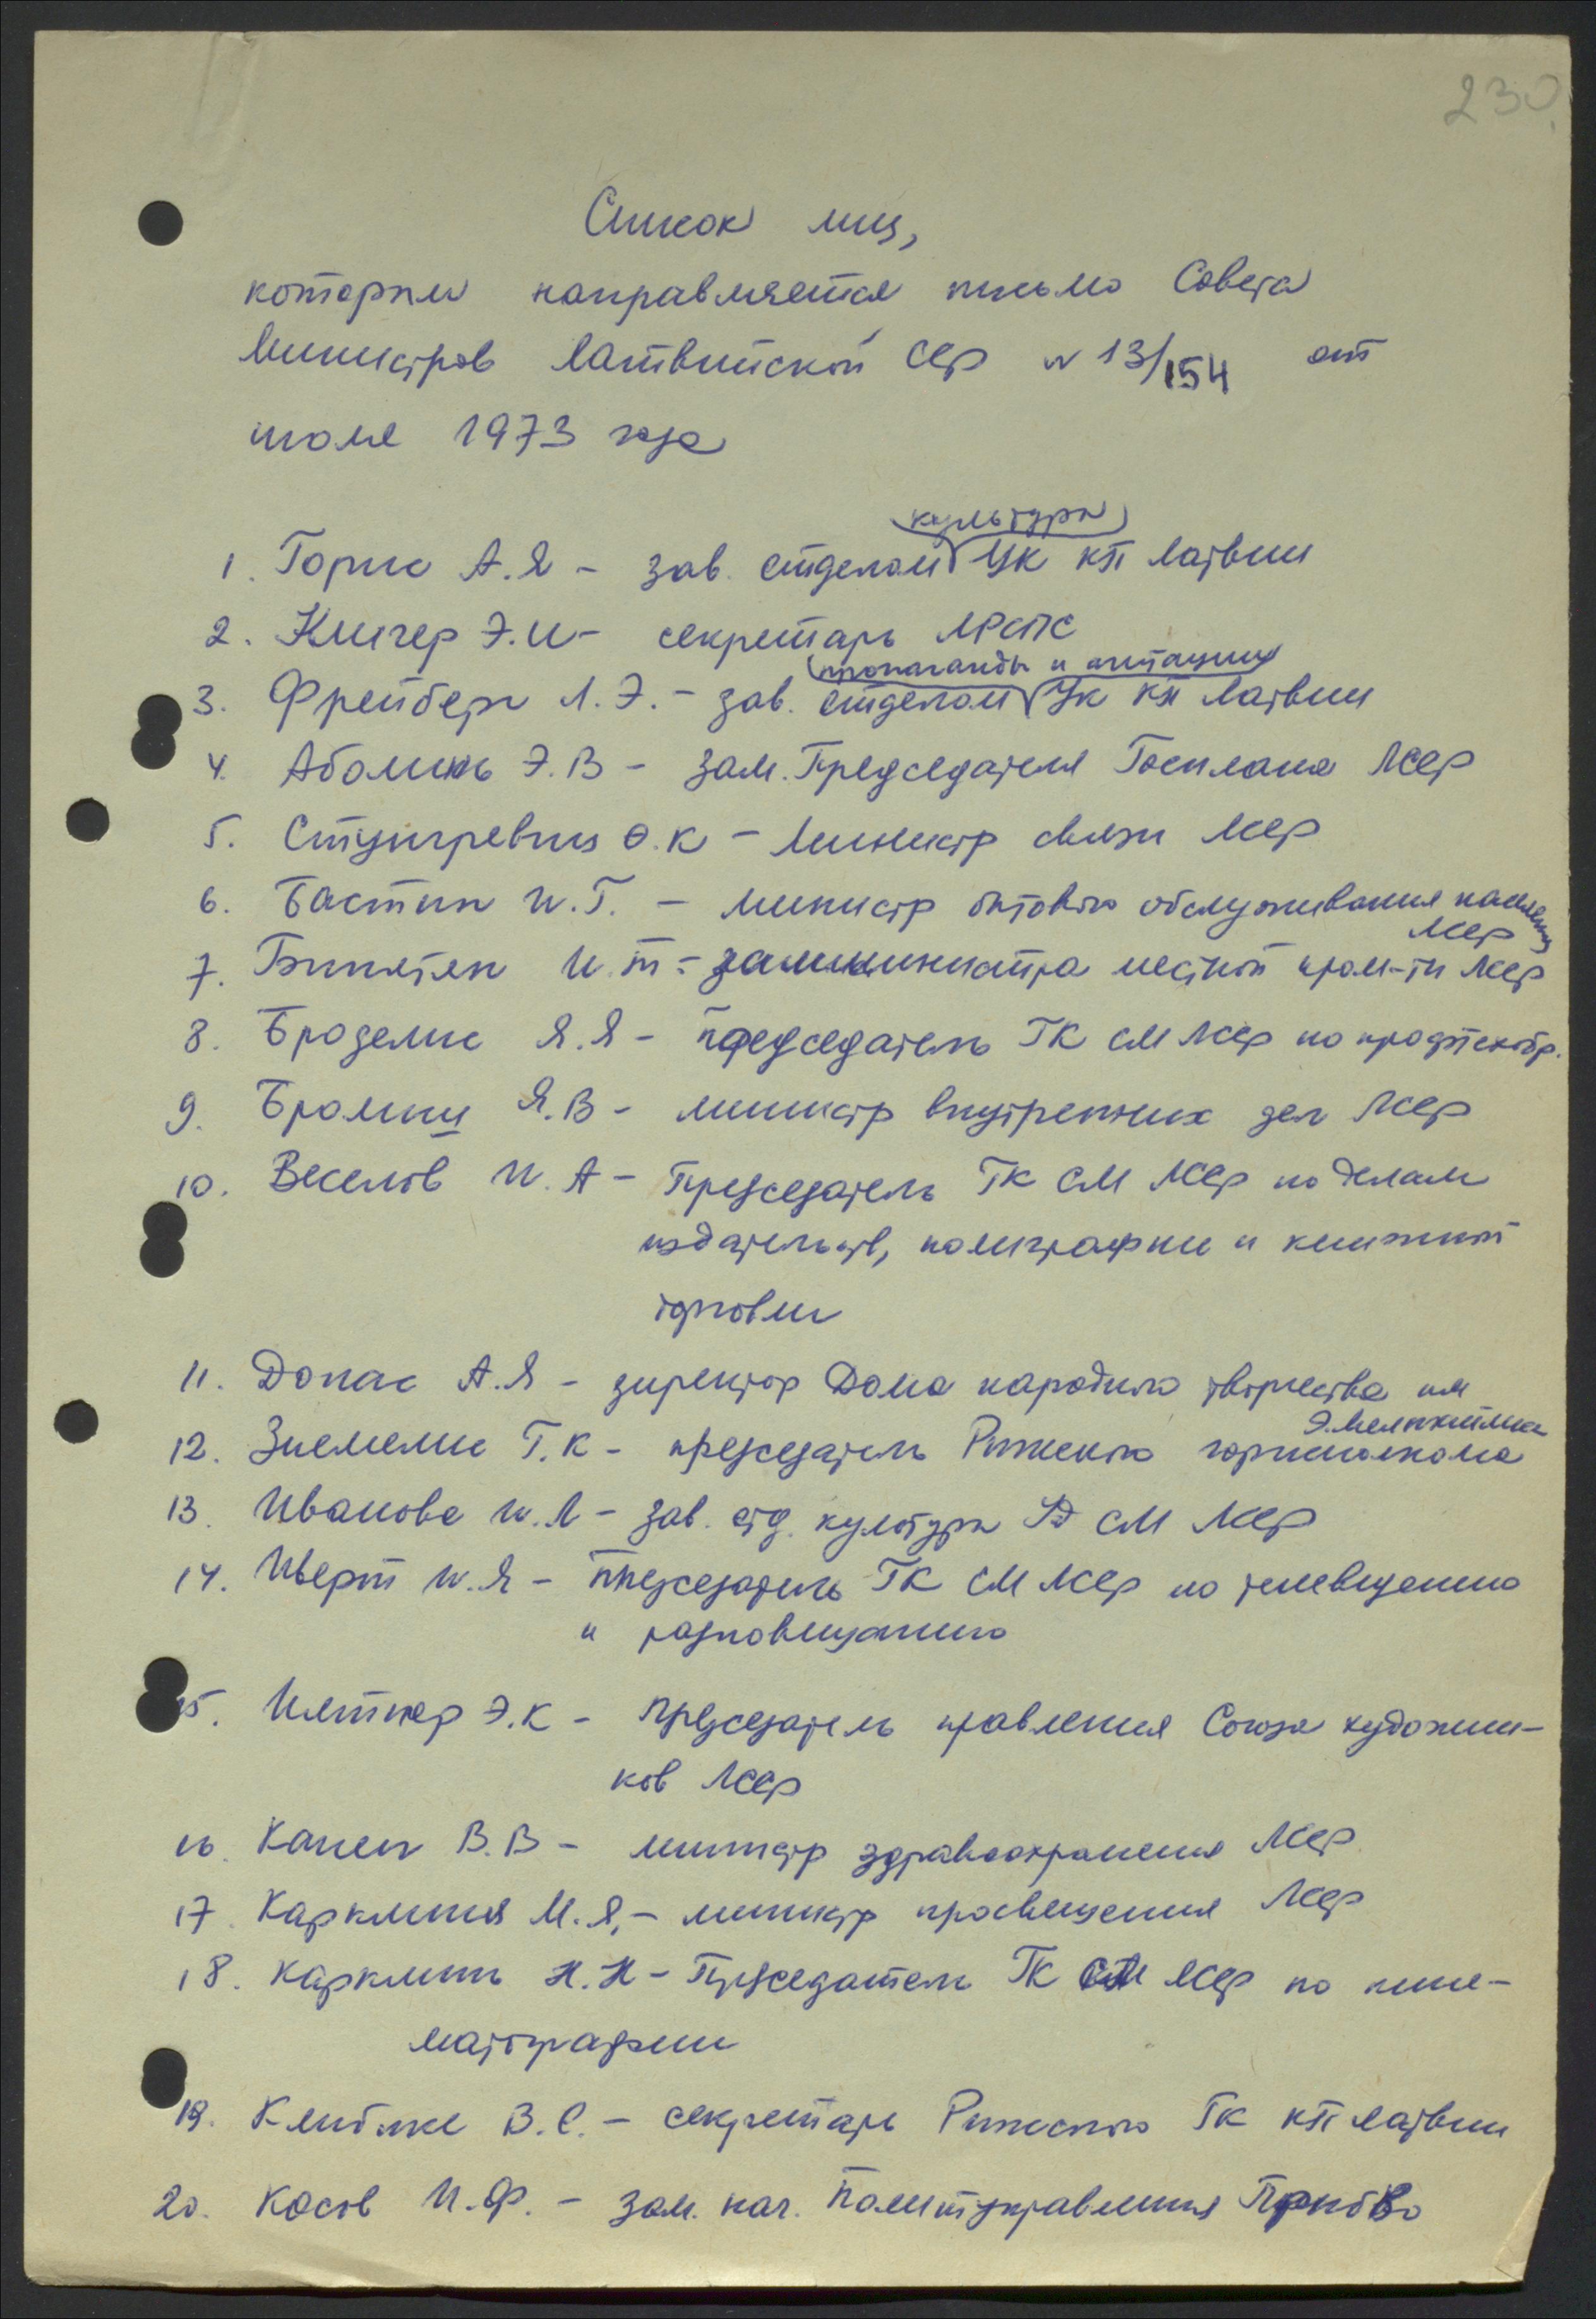 230
Список лиц,
которым направляется письмо Совета
Министров Латвийской ССР № 13/154 от
июля 1973 года
культуры
1. Горис А.Я - зав. отделом ЦК КП Латвии
2. Книгер Э.И - секретарь ЛРСПС
пропаганды и агитации
3. Фрейберг Л.Э. - зав. отделом ЦК КП Латвии
4. Аболинь Э.В - зам. Председателя Госплана ЛССР
5. Стунгревиц О.К - Министр связи ЛССР
6. Бастин И.Г. - министр бытового обслуживания населения
ЛССР
7. И.Т - замминистра местной пром-ти ЛССР
8. Броделис Я.Я - председатель ГК СМ ЛССР по профтехобр.
9. Бролиш Я.В - министр внутренних дел ЛССР
10. Веселов И.А - Председатель ГК СМ ЛССР по делам
издательств, полиграфии и книжной
торговли
11. Донас А.Я - директор Дома народного творчества им
Э.Мелнгайлиса
12. Зиемелис Г.К - председатель Рижского горисполкома
13. Иванова И.Л - зав. отд. культуры УД СМ ЛССР
14. Иверт И.Я - Председатель ГК СМ ЛССР по телевидению
и радиовещанию
15. Илтнер Э.К - Председатель правления Союза художни-
ков ЛССР
16. Канеп В.В - министр здравоохранения ЛССР
17. Карклиня М.Я. - министр просвещения ЛССР
18. Карклинь Н.Н - Председатель ГК СМ ЛССР по кине-
матографии
19. Клибике В.С. - секретарь Рижского ГК КП Латвии
20. Косов И.Ф. - зам. нач. Политуправления ПрибВо